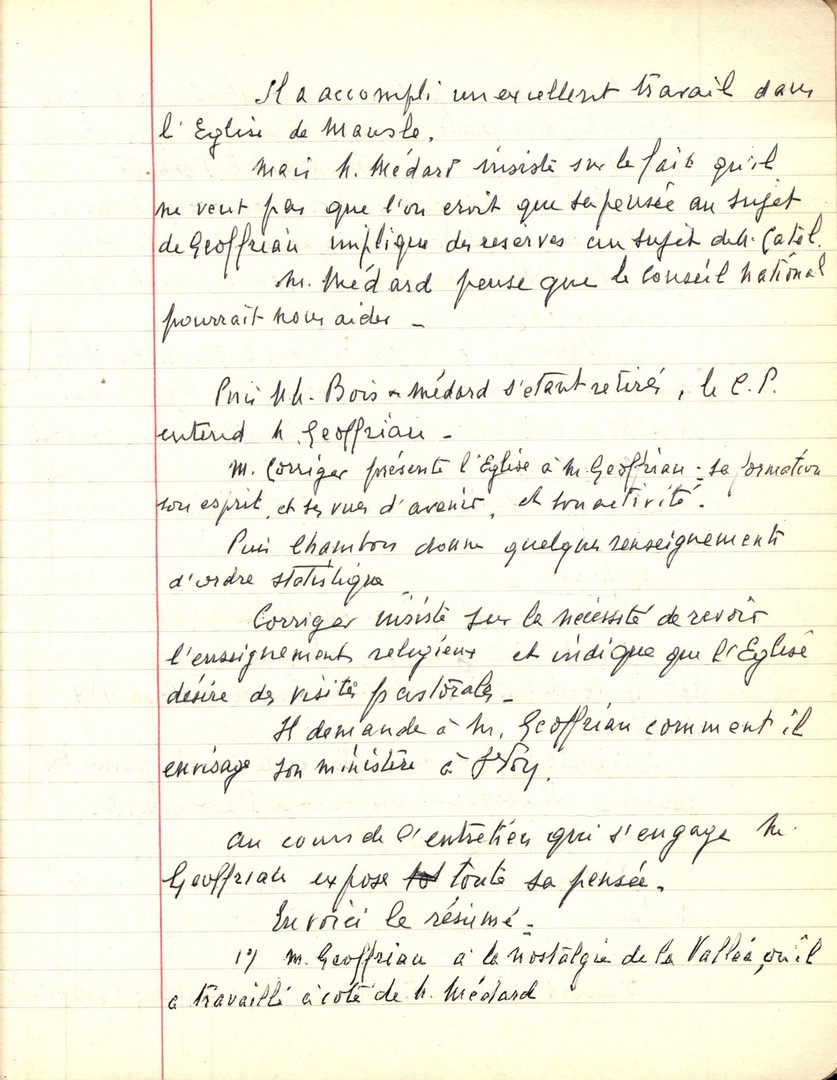 Il a accompli un excellent travail dans
l'Eglise de Mausle.
Mais M. Médard insiste sur le fait qu'il
ne veut pas que l'on croit que sa pensée au sujet
de Geoffriau implique des reserves au sujet de M. Catel.
M. Médard pense que le Conseil National
pourrait nous aider -
Puis MM. Bois & Médard s'étant retirés, le C.P.
entend M. Geoffriau -
M. Corriger présente l'Eglise à M. Geoffriau : sa formation
son esprit, et ses vues d'avenir, et son activité.
Puis Chambon donne quelques renseignements
d'ordre statistique
Corriger insiste sur la nécessité de revoir
l'enseignement religieux et indique que l'Eglise
désire des visites pastorales -
Il demande à M. Geoffriau comment il
envisage son ministère à
Au cours de l'entretien qui s'engage M.
Geoffriau expose toute sa pensée.
En voici le résumé -
1°) M. Geoffriau a la nostalgie de la Vallée, où il
a travaillé à coté de M. Médard